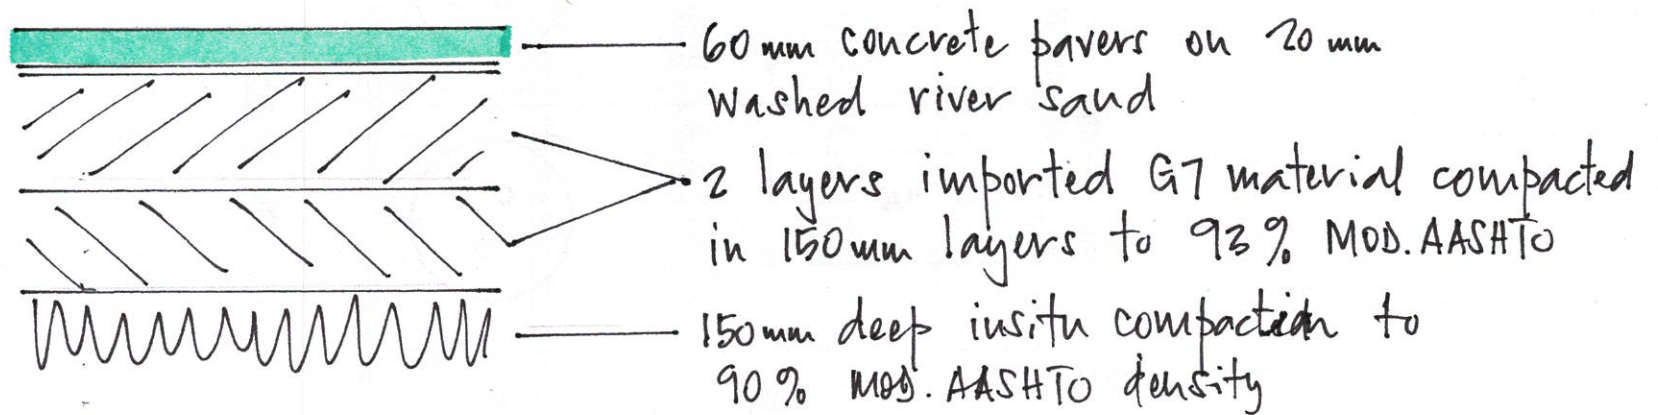 60mm concrete pavers on 20mm
washed river sand
2 layers imported G7 material compacted
in 150mm layers to 93% MOD. AASHTO
150mm deep insitu compaction to
90% MOD. AASHTO density